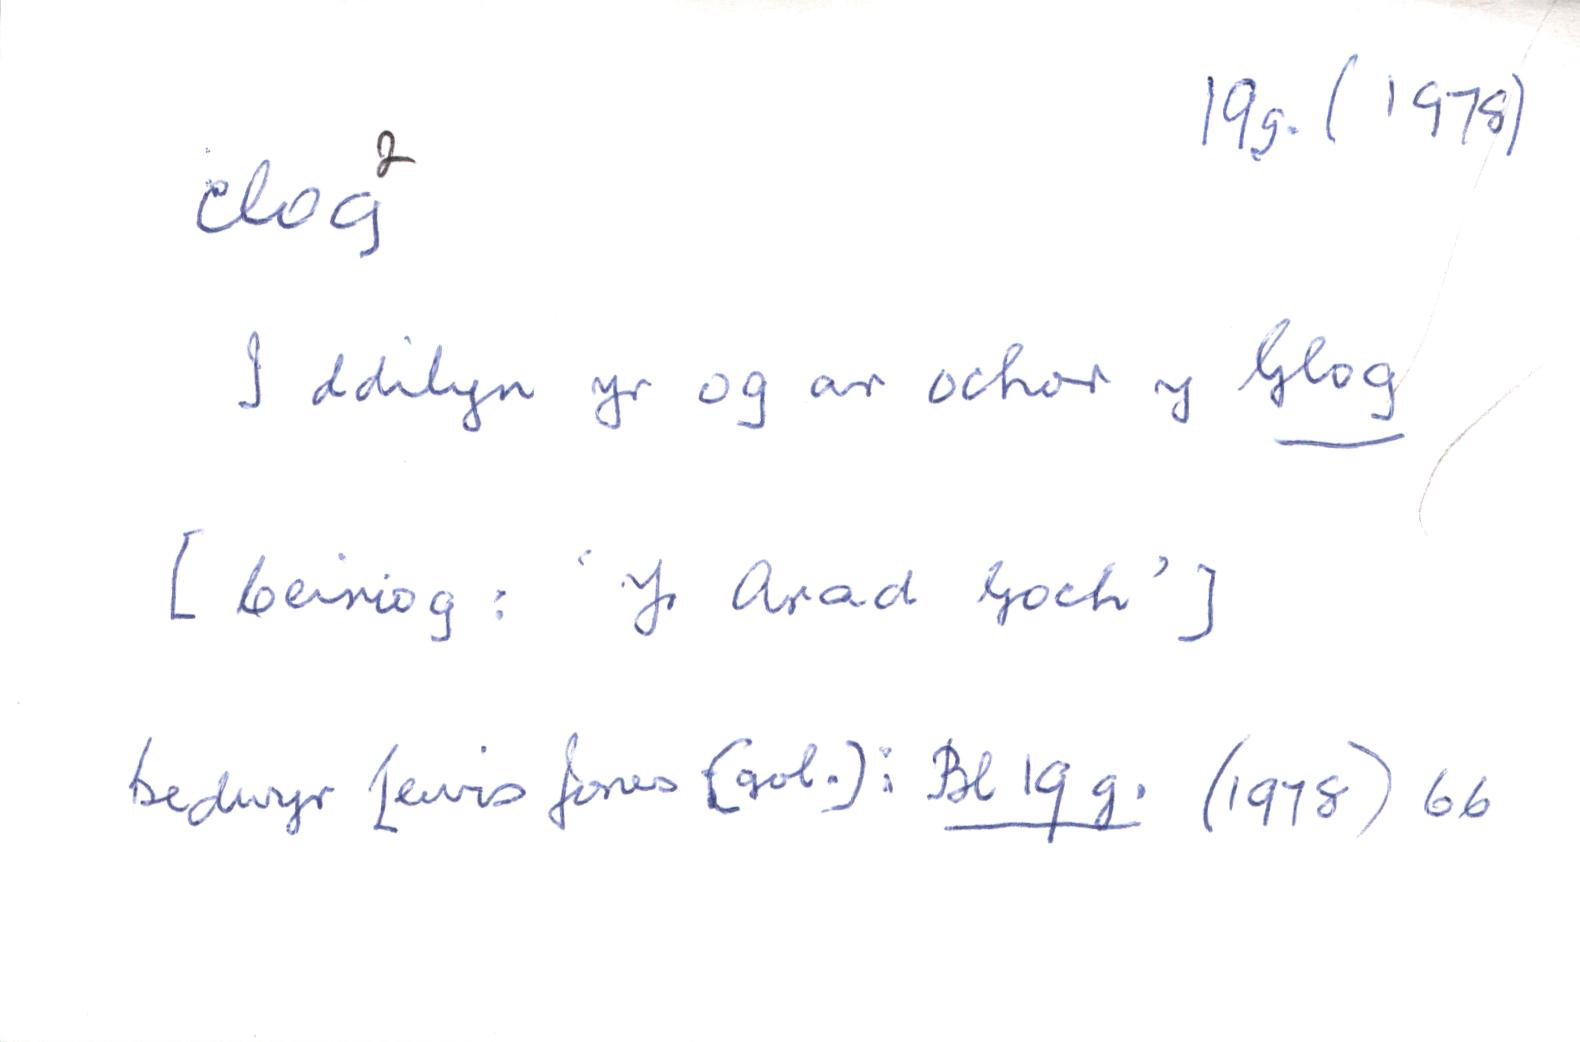 19g. (1978)
clog²
I ddilyn yr og ar ochor y Glog
[Ceiriog: 'Yr Arad Goch']
Bedwyr Lewis Jones (gol.): Bl 19g. (1978) 66